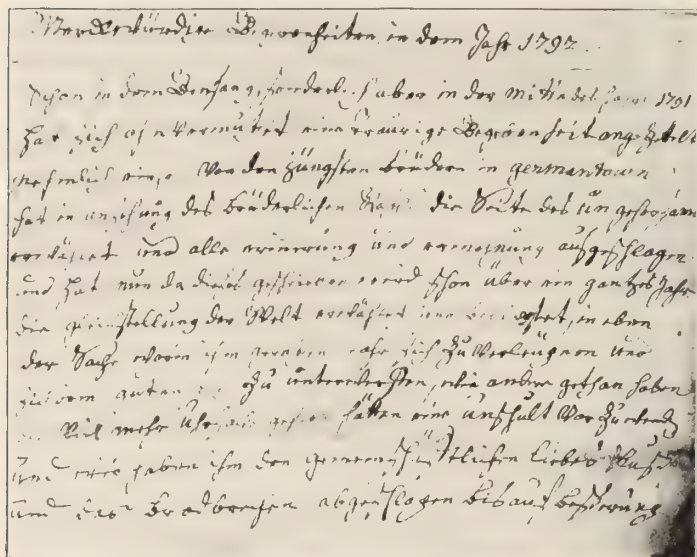 Merckwürdige Begebenheiten in dem Jahr 1792
Schon in dem Anfang, sonderlich aber in der Mitte des Jahrs 1791
hat sich ohnvermutet eine traurige Begebenheit angezettelt
nehmlich einer von den Jüngsten brüdern in germantown
hat in ansehung des brüderlichen Rats die Seite des ungehorsams
erwählet und alle erinnerung und ermahnung ausgeschlagen
und hat nun da dieses geschrieben wird schon über ein gantzes Jahr
die gleichstellung der Welt erwählet und, in eben
der Sache worin ihm gerathen sich zu verleugnen und
zu unterwerffen, wie andere gethan haben
viel mehr eine unschult vor zu wenden
und wir haben ihm den gemeinschäftlichen liebes Kuss
und das brodbrechen abgeschlagen bis auf besserung